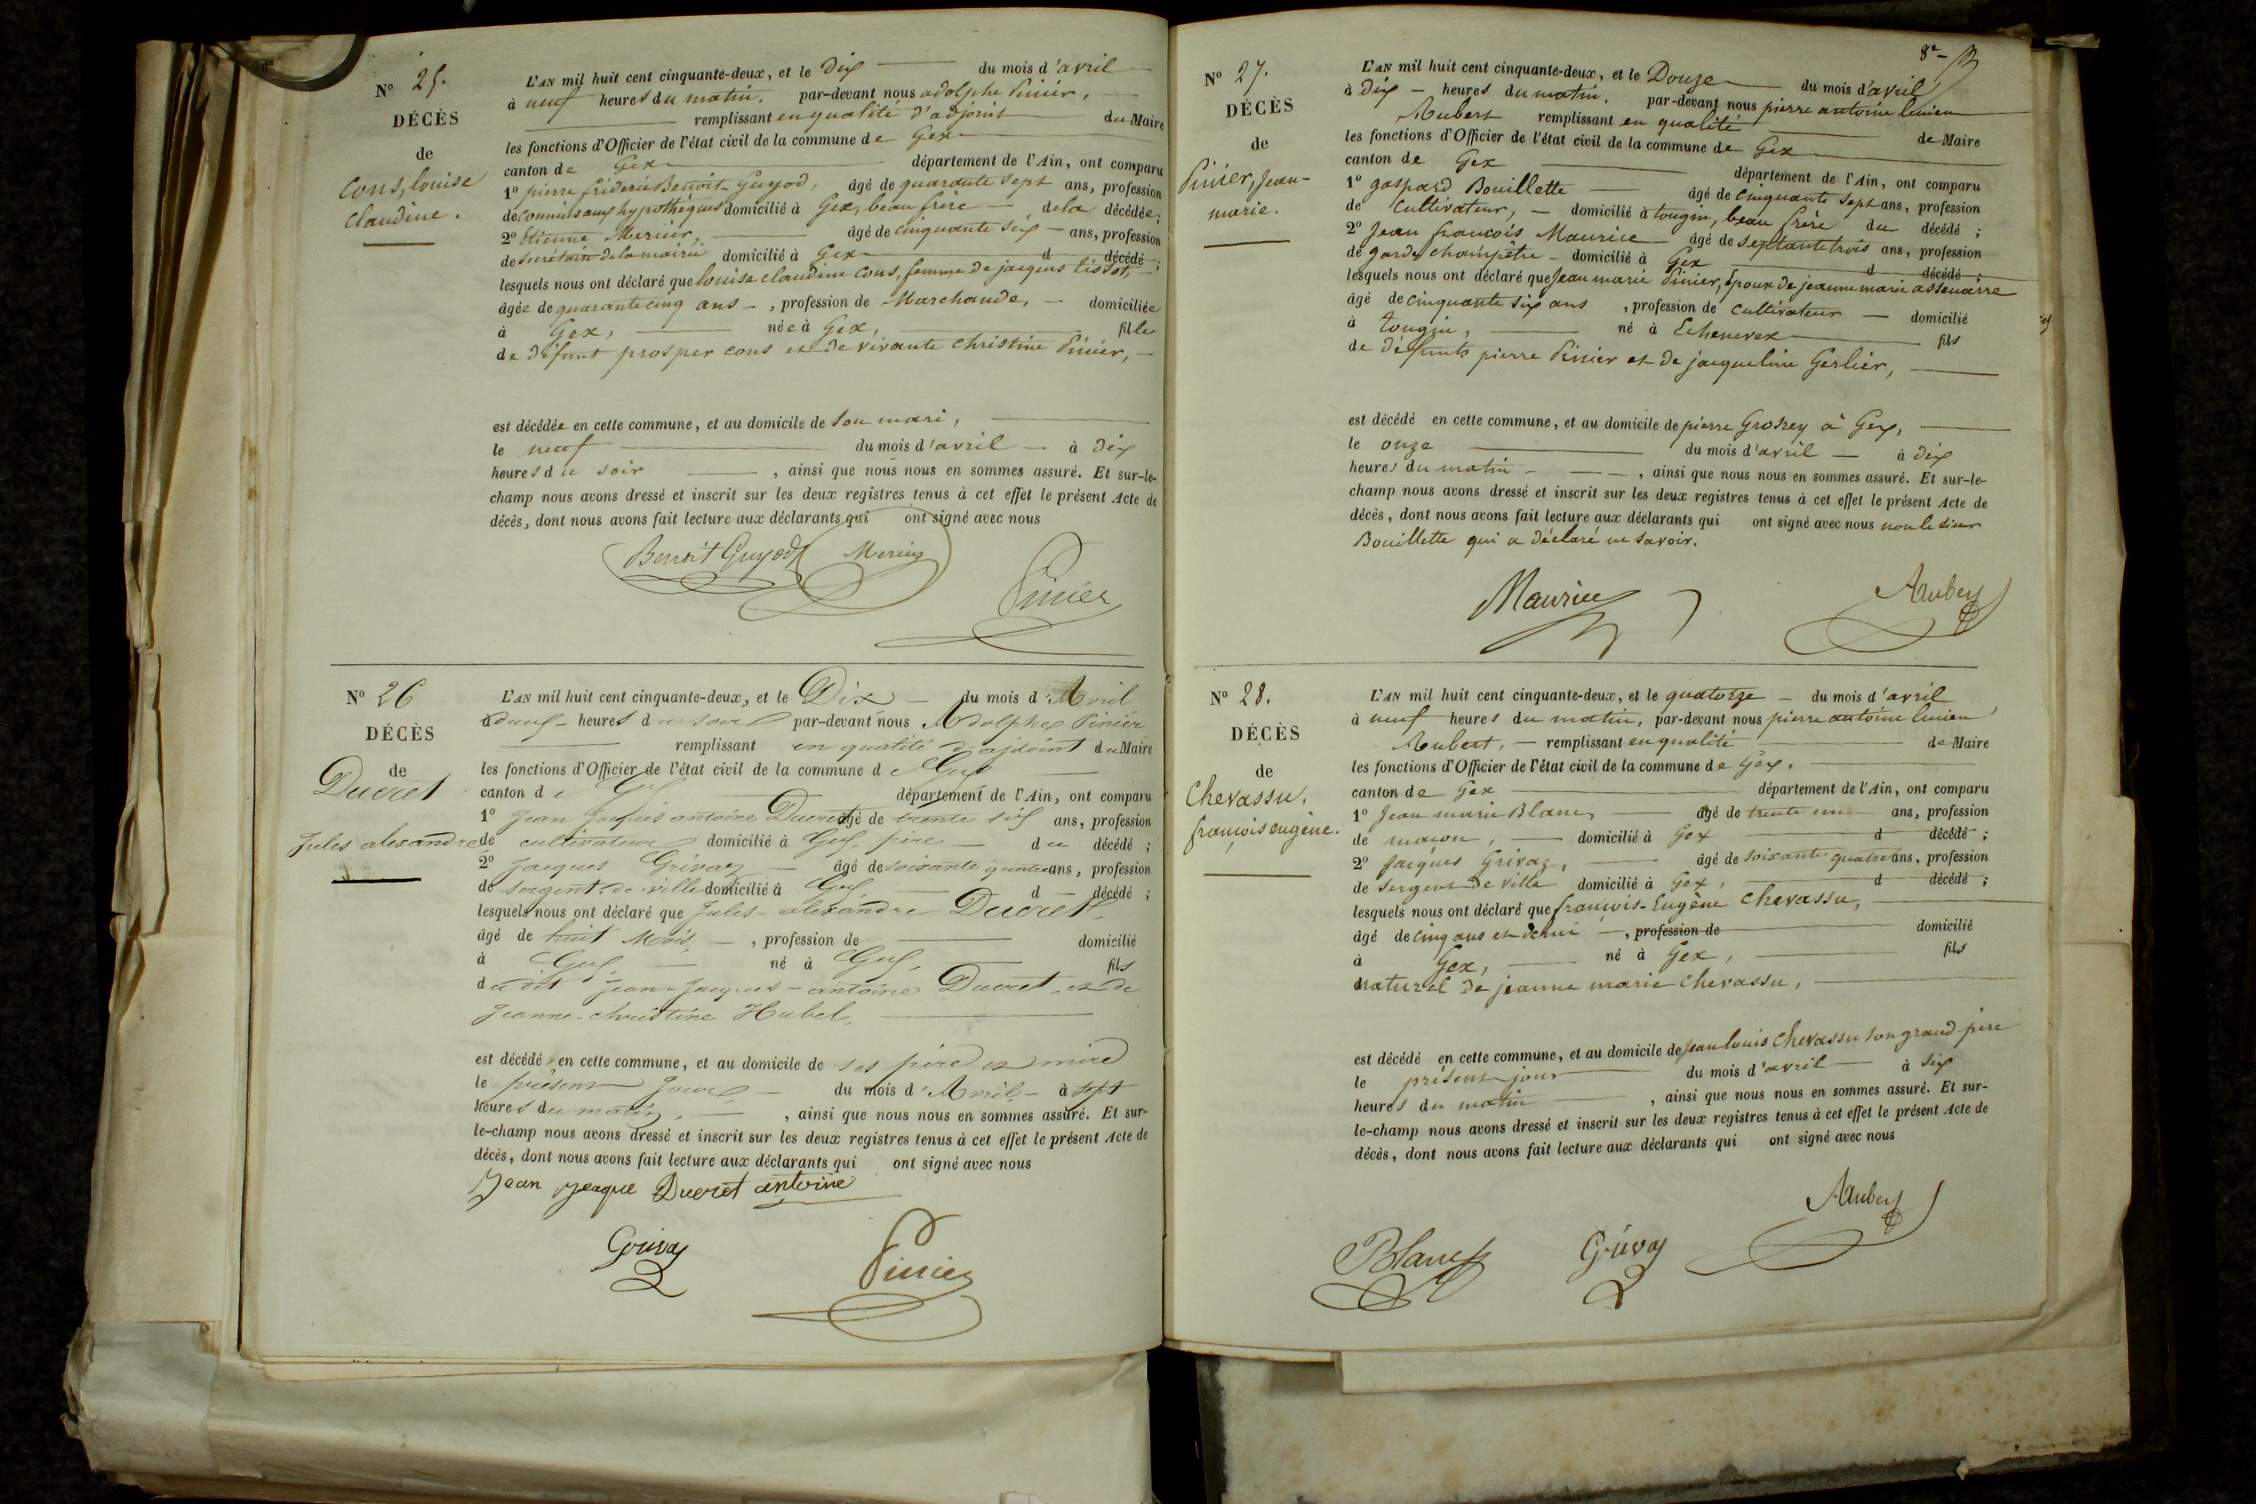 N° 25.
DÉCÈS
de
Cons, louise
claudine.
L'AN mil huit cent cinquante-deux, et le Dix du mois d'avril
à neuf heures du matin, par-devant nous adolphe Pinier,
remplissant en qualité d'adjoint du Maire
les fonctions d'Officier de l'état civil de la commune de Gex
canton de Gex département de l'Ain, ont comparu
1° pierre fréderic Benoit-Guyod, âgé de quarante sept ans, profession
de commis aux hypothèques domicilié à Gex, beau frère de la décédée;
2° Etienne Mercier, âgé de cinquante six ans, profession
de secrétaire de la mairie domicilié à Gex d décédé ;
lesquels nous ont déclaré que louise claudine Cons, femme de jacques tissot,
âgée de quarante cinq ans, profession de Marchande, domiciliée
à Gex, née à Gex, fille
de défunt prosper cons et de vivante christine Pinier,
est décédée en cette commune, et au domicile de son mari,
le neuf du mois d'avril à dix
heures du soir, ainsi que nous nous en sommes assuré. Et sur-le-
champ nous avons dressé et inscrit sur les deux registres tenus à cet effet le présent Acte de
décès, dont nous avons fait lecture aux déclarants qui ont signé avec nous
Benoit Guyod Mercier
Pinier
N° 26
DÉCÈS
de
Ducret
Jules alexandre
L'AN mil huit cent cinquante-deux, et le Dix du mois d'Avril
à neuf heures du soir par-devant nous Adolphe Pinier
remplissant en qualité d'ajdoint du Maire
les fonctions d'Officier de l'état civil de la commune de Gex
canton de Gex département de l'Ain, ont comparu
1° Jean Jacques antoine Ducret âgé de trente six ans, profession
de cultivateur domicilié à Gex, père du décédé ;
2° Jacques Grivaz âgé de soixante quatre ans, profession
de sergent de ville domicilié à Gex d décédé ;
lesquels nous ont déclaré que Jules-alexandre Ducret,
âgé de huit Mois, profession de domicilié
à Gex, né à Gex, fils
du dit Jean-Jacques-antoine Ducret et de
Jeanne-christine Hubel,
est décédé en cette commune, et au domicile de ses père et mère
le présent jour du mois d'Avril à sept
heures du matin, ainsi que nous nous en sommes assuré. Et sur-
le-champ nous avons dressé et inscrit sur les deux registres tenus à cet effet le présent Acte de
décès, dont nous avons fait lecture aux déclarants qui ont signé avec nous
Jean Jeaque Ducret antoine
Grivaz
Pinier
8e
N° 27.
DÉCÈS
de
Pinier, Jean-
marie.
L'AN mil huit cent cinquante-deux, et le Douze du mois d'avril
à dix heures du matin, par-devant nous pierre antoine lucien
Aubert remplissant en qualité de Maire
les fonctions d'Officier de l'état civil de la commune de Gex
canton de Gex département de l'Ain, ont comparu
1° gaspard Bouillette âgé de cinquante sept ans, profession
de cultivateur, domicilié à tougin, beau frère du décédé ;
2° Jean francois Maurice âgé de septante trois ans, profession
de garde champêtre domicilié à Gex d décédé ;
lesquels nous ont déclaré que Jean marie Pinier, époux de jeanne marie assenarre
âgé de cinquante six ans, profession de cultivateur domicilié
à tougin, né à Echenevex fils
de défunts pierre Pinier et de jacqueline Gerlier,
est décédé en cette commune, et au domicile de pierre Grosrey à Gex,
le onze du mois d'avril à dix
heures du matin, ainsi que nous nous en sommes assuré. Et sur-le-
champ nous avons dressé et inscrit sur les deux registres tenus à cet effet le présent Acte de
décès, dont nous avons fait lecture aux déclarants qui ont signé avec nous non le sieur
Bouillette qui a déclaré ne savoir.
Maurice
Aubert
N° 28.
DÉCÈS
de
Chevassu,
françois eugène.
L'AN mil huit cent cinquante-deux, et le quatorze du mois d'avril
à neuf heures du matin, par-devant nous pierre antoine lucien
Aubert, remplissant en qualité de Maire
les fonctions d'Officier de l'état civil de la commune de Gex,
canton de Gex département de l'Ain, ont comparu
1° Jean marie Blanc, âgé de trente un ans, profession
de macon, domicilié à Gex d décédé ;
2° Jacques Grivaz, âgé de soixante quatre ans, profession
de sergent de ville domicilié à Gex, d décédé ;
lesquels nous ont déclaré que françois-Eugène Chevassu,
âgé de cinq ans et demi, profession de domicilié
à Gex, né à Gex, fils
naturel de jeanne marie Chevassu,
est décédé en cette commune, et au domicile de Jean louis Chevassu son grand père
le présent jour du mois d'avril à six
heures du matin, ainsi que nous nous en sommes assuré. Et sur-
le-champ nous avons dressé et inscrit sur les deux registres tenus à cet effet le présent Acte de
décès, dont nous avons fait lecture aux déclarants qui ont signé avec nous
Aubert
Blanc
Grivaz